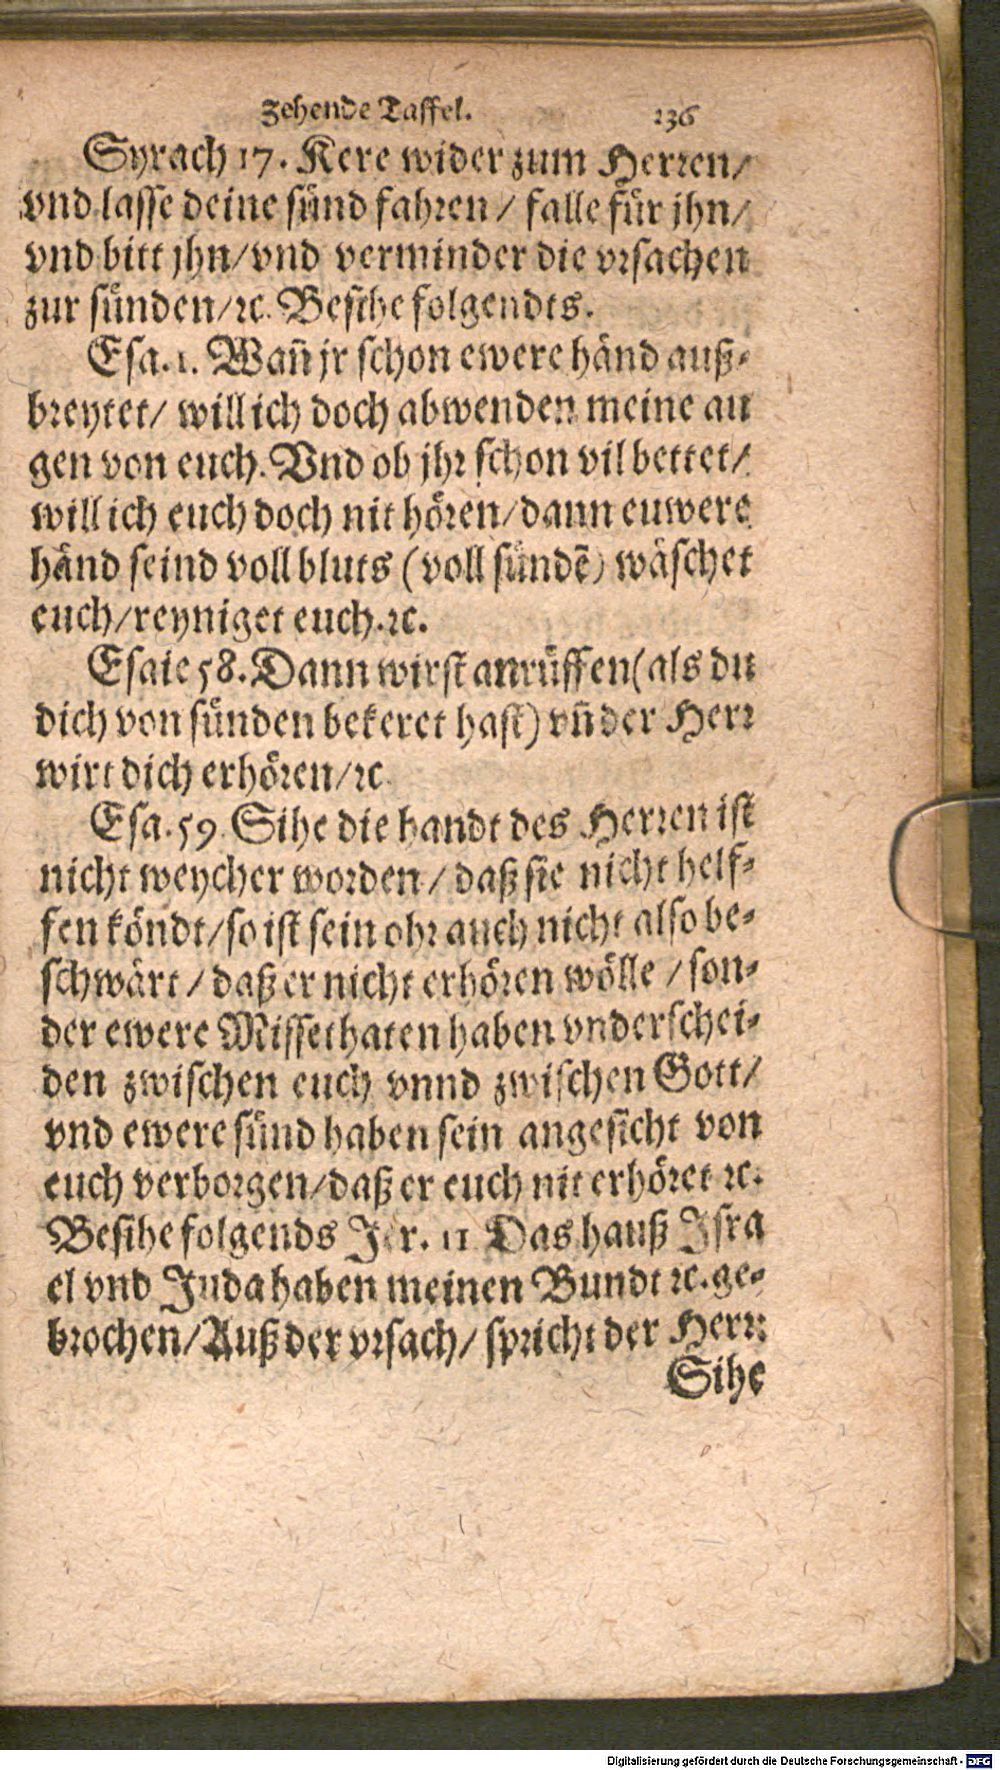 Zehende Taffel. 236
Syrach 17. Kere wider zum Herren/
vnd lasse deine sünd fahren / falle für jhn/
vnd bitt jhn/vnd verminder die vrsachen
zur sünden/ꝛc. Besihe folgendts.
Esa. 1. Wañ jr schon ewere händ auß-
breytet/ will ich doch abwenden meine au
gen von euch. Vnd ob jhr schon vil bettet/
will ich euch doch nit hören/dann euwere
händ seind voll bluts (voll sündē) wäschet
euch/reyniget euch.ꝛc.
Esaie 58. Dann wirst anrüffen(als du
dich von sünden bekeret hast) vñ der Herr
wirt dich erhören/ꝛc
Esa. 59. Sihe die handt des Herren ist
nicht weycher worden/ daß sie nicht helf-
fen köndt/so ist sein ohr auch nicht also be-
schwärt / daß er nicht erhören wölle / son-
der ewere Missethaten haben vnderschei-
den zwischen euch vnnd zwischen Gott/
vnd ewere sünd haben sein angesicht von
euch verborgen/daß er euch nit erhöret ꝛc.
Besihe folgends Jer. 11 Das hauß Isra
el vnd Juda haben meinen Bundt ꝛc. ge-
brochen/Auß der vrsach/ spricht der Herr:
Sihe
Digitalisierung gefördert durch die Deutsche Forschungsgemeinschaft - DFG